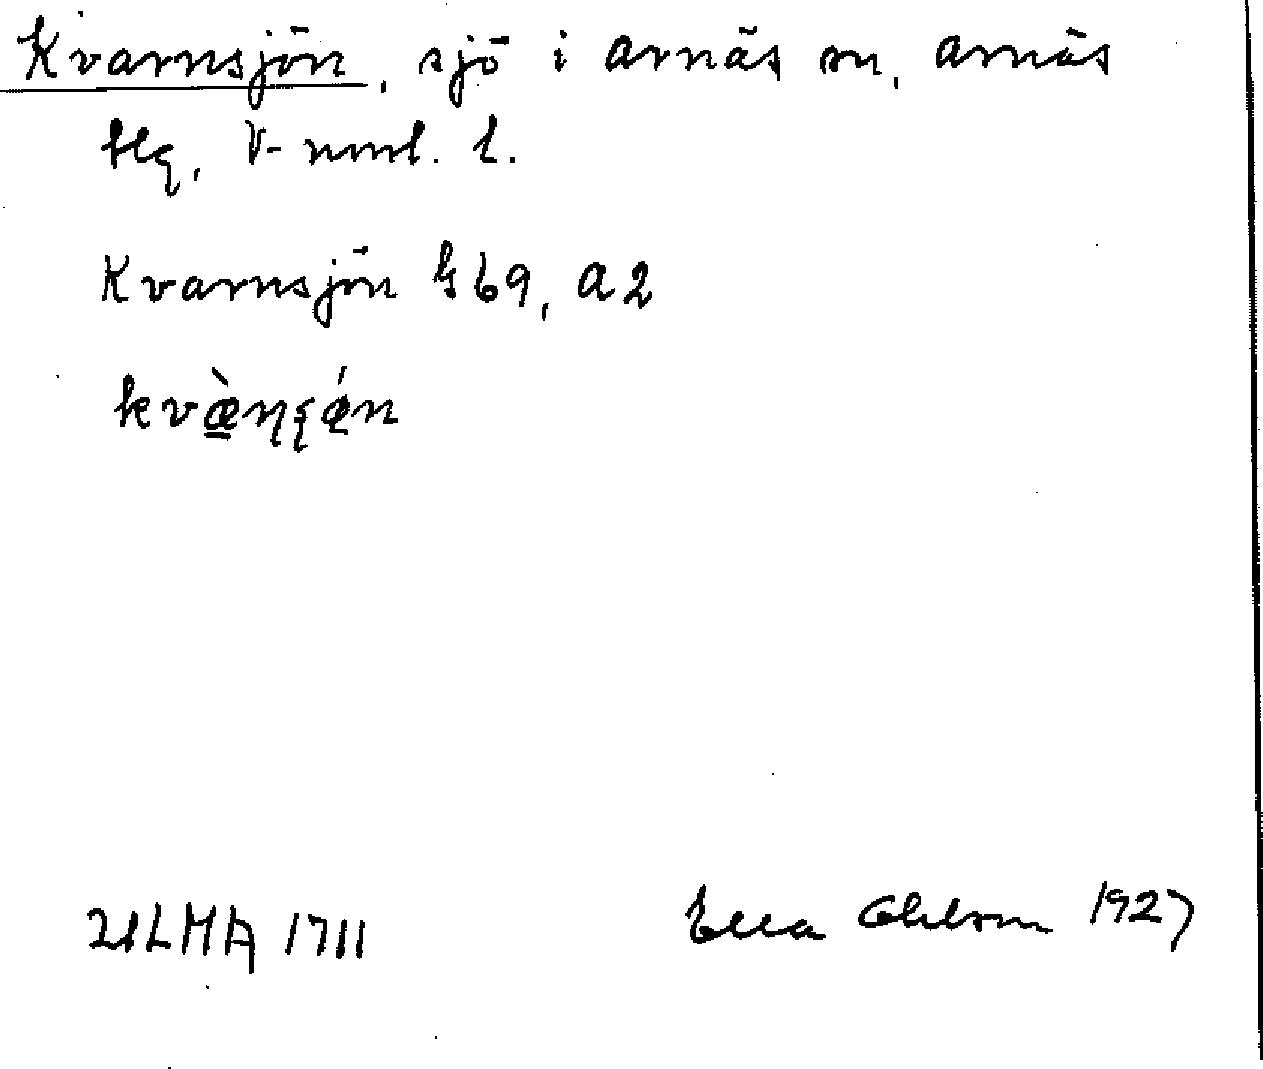 Kvarnsjön, sjö i Arnäs sn, Arnäs
tlg, V-nml. l.
Kvarnsjön G 69, A2
ULMA 1711
Ella Ohlson 1927